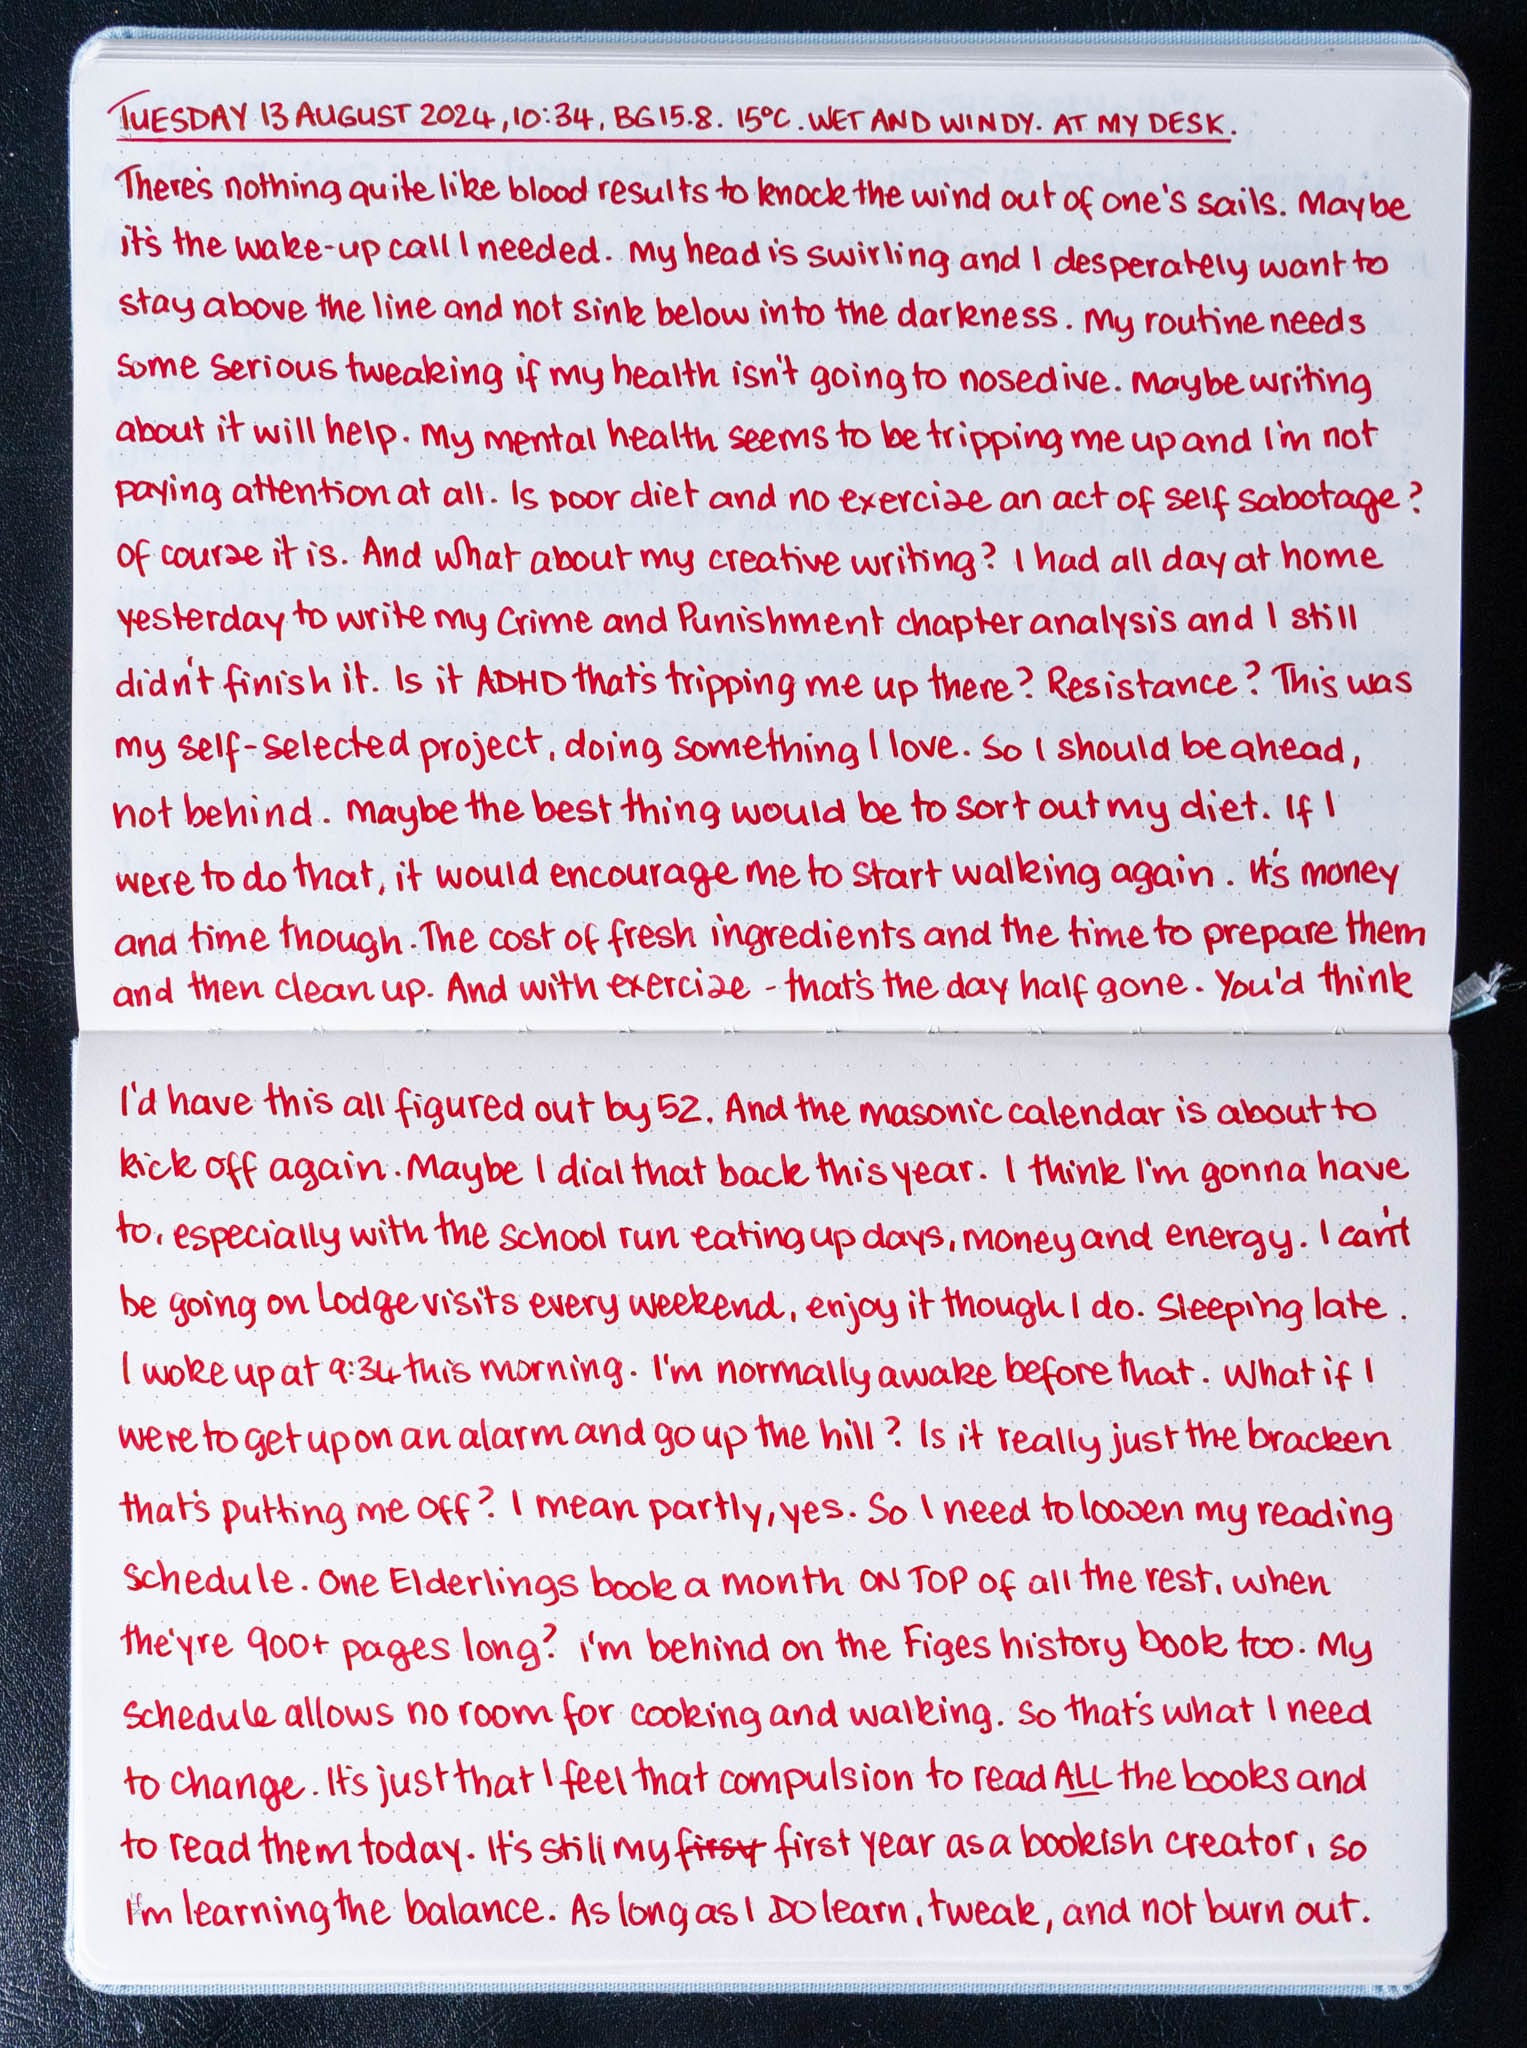 TUESDAY 13 AUGUST 2024, 10:34, BG 15.8. 15°C. WET AND WINDY. AT MY DESK.
There's nothing quite like blood results to knock the wind out of one's sails. Maybe
it's the wake-up call I needed. My head is swirling and I desperately want to
stay above the line and not sink below into the darkness. My routine needs
some serious tweaking if my health isn't going to nosedive. Maybe writing
about it will help. My mental health seems to be tripping me up and I'm not
paying attention at all. Is poor diet and no exercise an act of self sabotage?
Of course it is. And what about my creative writing? I had all day at home
yesterday to write my Crime and Punishment chapter analysis and I still
didn't finish it. Is it ADHD that's tripping me up there? Resistance? This was
my self-selected project, doing something I love. So I should be ahead,
not behind. Maybe the best thing would be to sort out my diet. If I
were to do that, it would encourage me to start walking again. It's money
and time though. The cost of fresh ingredients and the time to prepare them
and then clean up. And with exercise - that's the day half gone. You'd think
I'd have this all figured out by 52. And the masonic calendar is about to
kick off again. Maybe I dial that back this year. I think I'm gonna have
to, especially with the school run eating up days, money and energy. I can't
be going on Lodge visits every weekend, enjoy it though I do. Sleeping late.
I woke up at 9:34 this morning. I'm normally awake before that. What if I
were to get up on an alarm and go up the hill? Is it really just the bracken
that's putting me off? I mean partly, yes. So I need to loosen my reading
schedule. One Elderlings book a month ON TOP of all the rest, when
they're 900+ pages long? I'm behind on the Figes history book too. My
schedule allows no room for cooking and walking. So that's what I need
to change. It's just that I feel that compulsion to read ALL the books and
to read them today. It's still my first first year as a bookish creator, so
I'm learning the balance. As long as I DO learn, tweak, and not burn out.